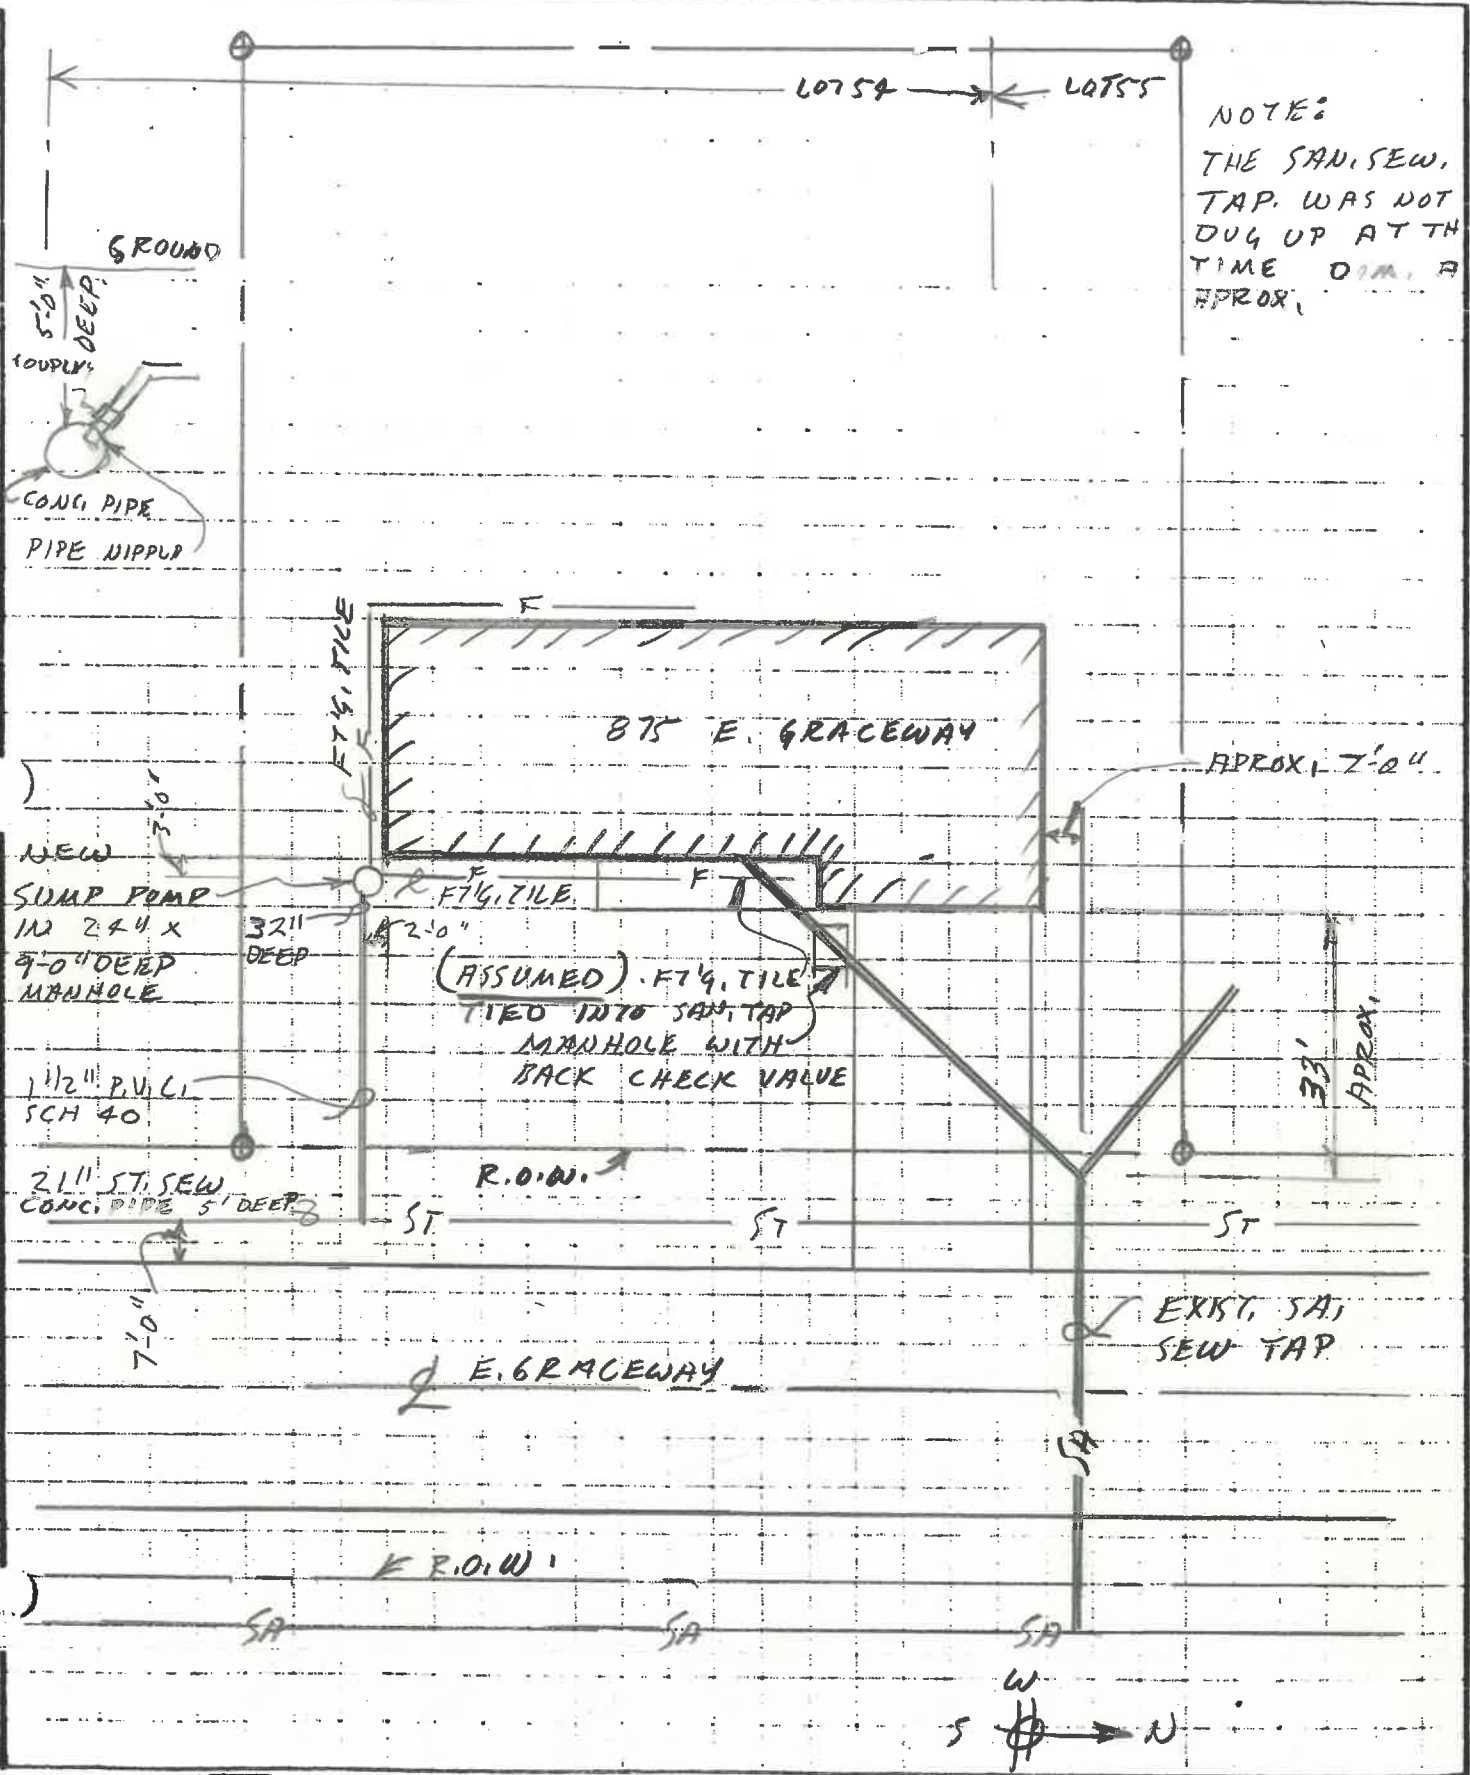 LOT 54
LOT 55
NOTE:
THE SAN. SEW.
TAP. WAS NOT
DUG UP AT TH
TIME
APROX.
GROUND
5'-0"
DEEP
CONC. PIPE
PIPE NIPPLE
F
FT'G. TILE
F
875 E. GRACEWAY
APROX. 7'-0"
3'-0"
NEW
SUMP PUMP
IN 24" X
9'-0" DEEP
MANHOLE
32"
DEEP
2'-0"
F
F
FT'G. TILE
(ASSUMED). FT'G. TILE
TIED INTO SAN. TAP
MANHOLE WITH
BACK CHECK VALUE
33'
APROX.
1 1/2" P.V.C.
SCH 40
R.O.W.
21" ST. SEW
CONC. PIPE 5' DEEP
ST
ST
ST
7'-0"
EXIST. SA.
SEW TAP
E. GRACEWAY
SA
R.O.W.
SA
SA
SA
W
S
N